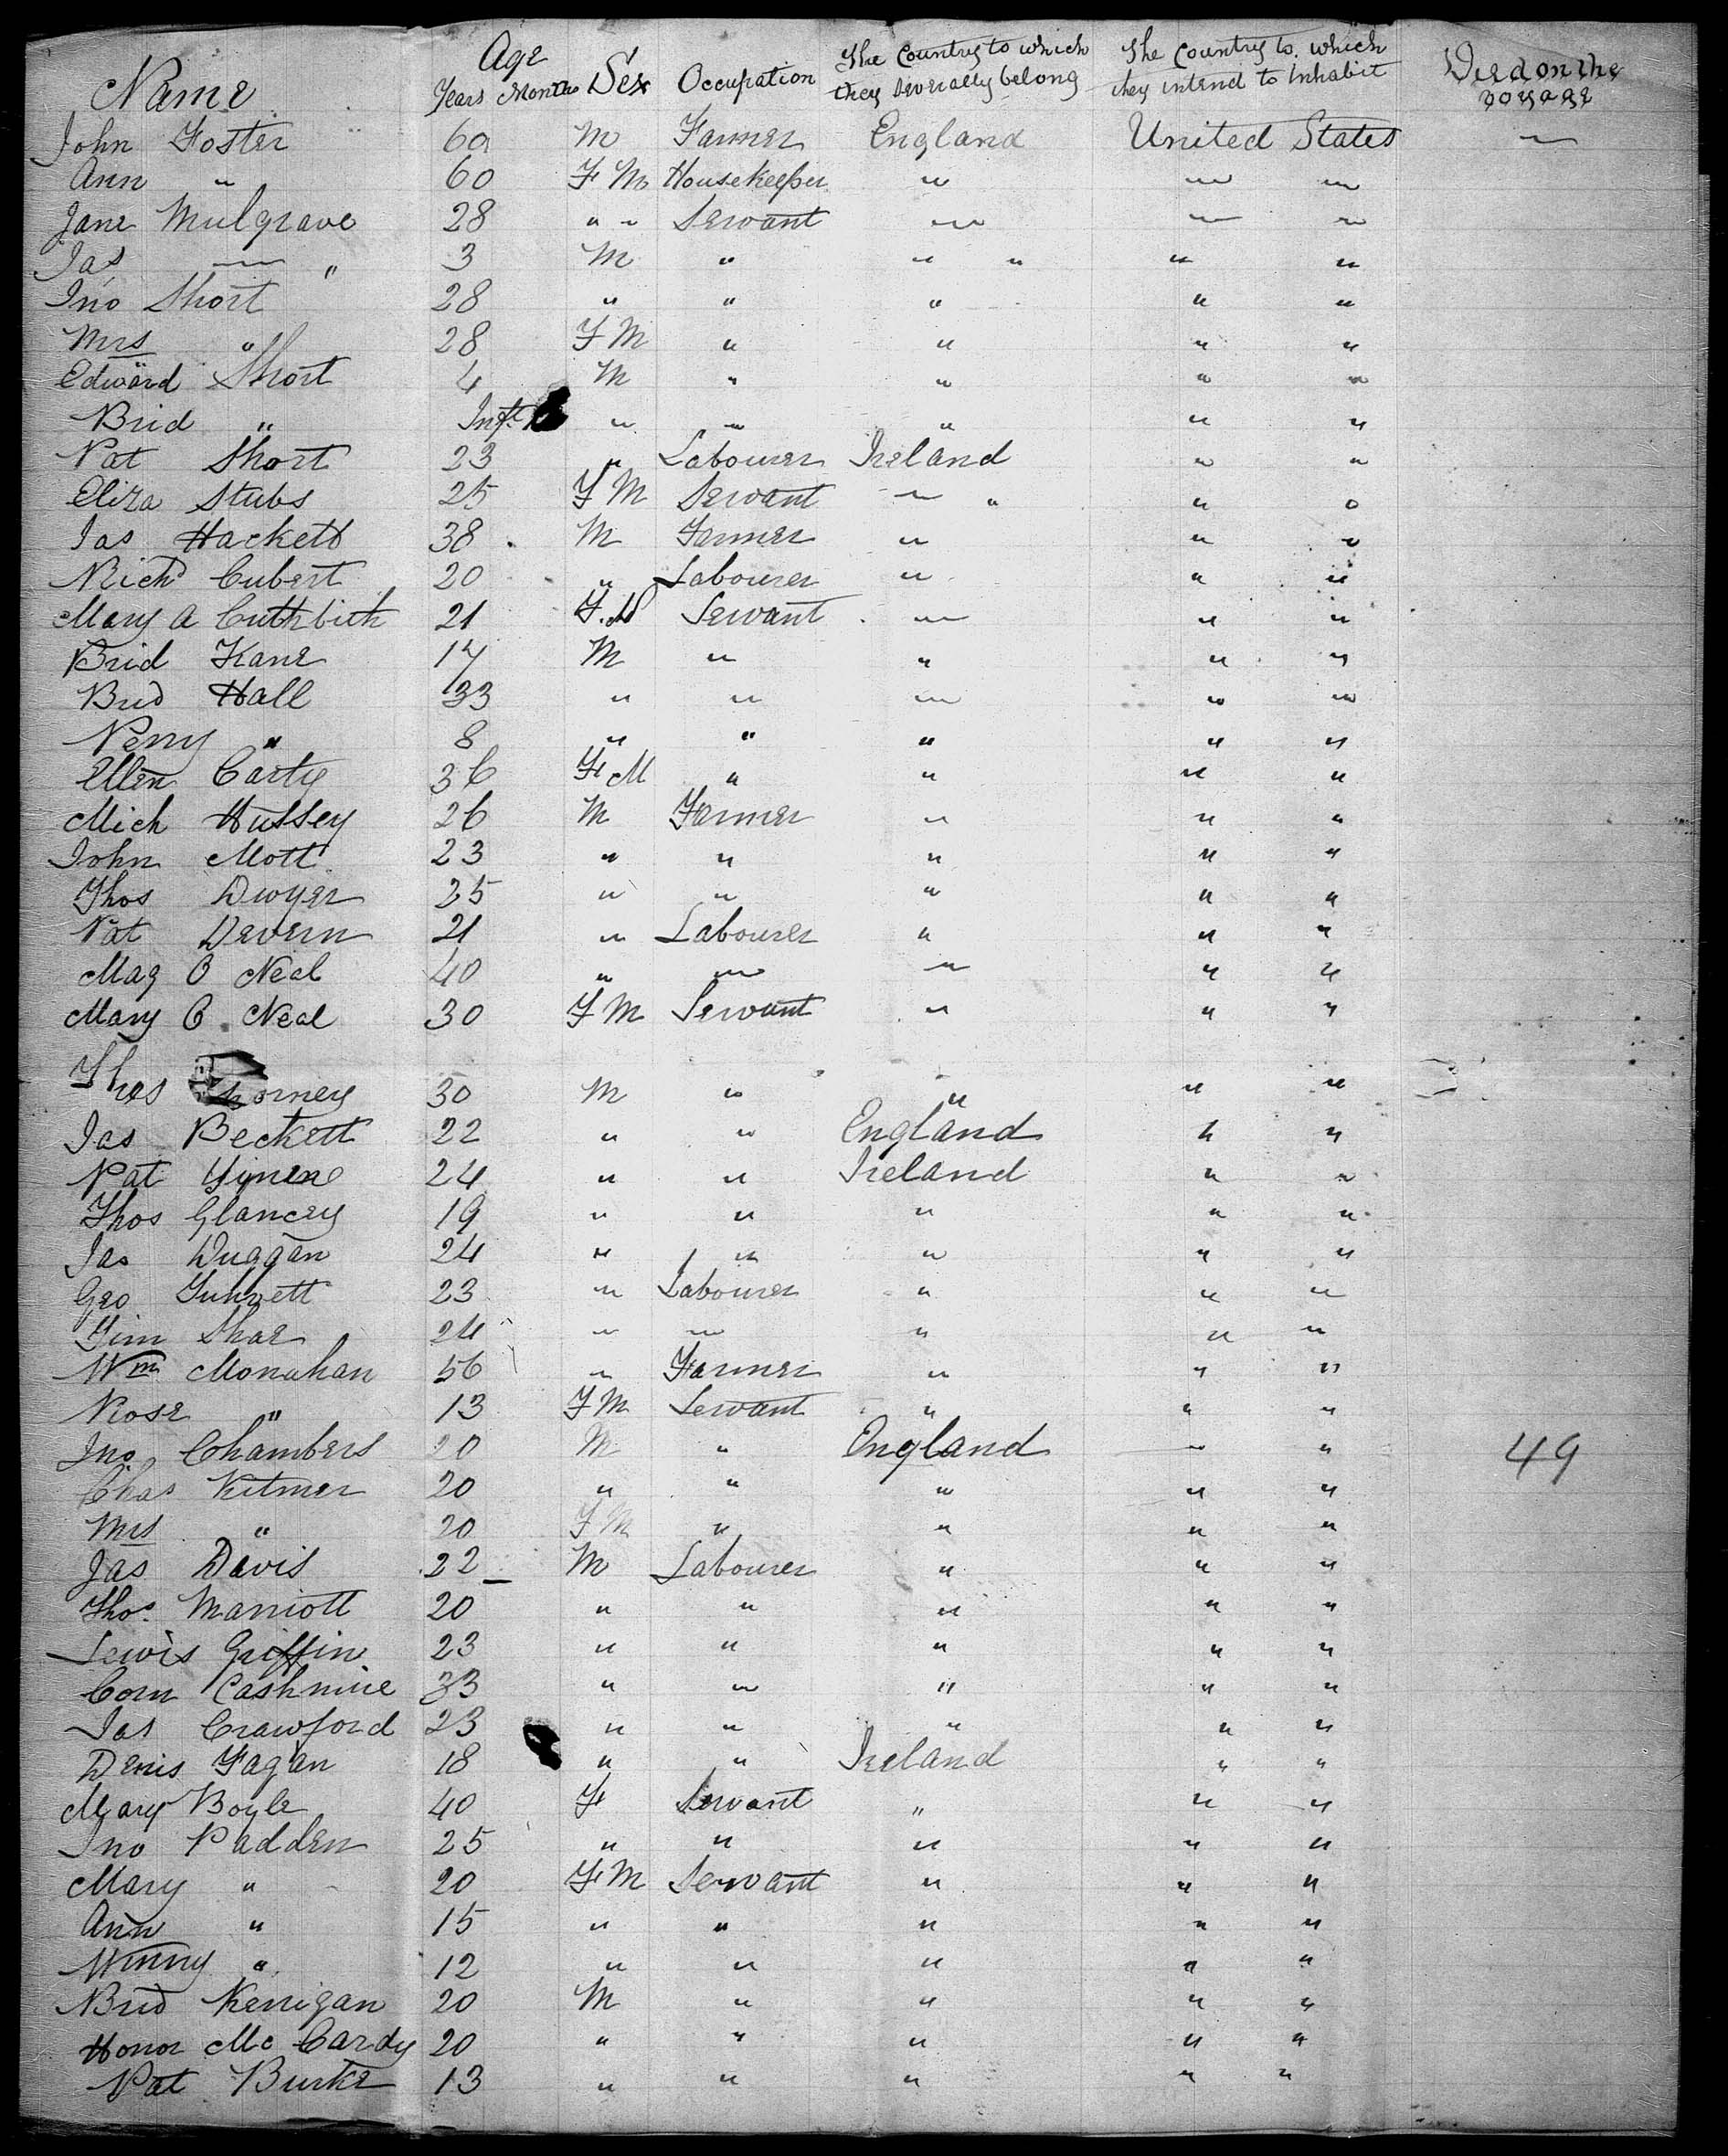 Name Age Years Months Sex Occupation The Country to which they severally belong The Country to which they intend to Inhabit Died on the voyage
John Foster 60 M Farmer England United States —
Ann " 60 F M Housekeeper " " "
Jane Mulgrave 28 " " Servant " " "
Jas — " 3 M " " " " "
Jno Short 28 " " " " "
Mrs " 28 F M " " " "
Edward Short 4 M " " " "
Brid " Inft " " " " "
Pat Short 23 " Labourer Ireland " "
Eliza Stubs 25 F M Servant " " " "
Jas Hackett 38 M Farmer " " "
Richd Cubert 20 " Labourer " " "
Mary A Cuthbith 21 F. M Servant " " "
Brid Kane 17 M " " " "
Brid Hall 33 " " " " "
Perry " 8 " " " " "
Ellen Carty 36 F M " " " "
Mich Hussey 26 M Farmer " " "
John Mott 23 " " " " "
Thos Dwyer 25 " " " " "
Pat Devern 21 " Labourer " " "
Mag O Neal 40 " " " " "
Mary O Neal 30 F M Servant " " "
Thos 30 M " " " "
Jas Beckett 22 " " England " "
Pat 24 " " Ireland " "
Thos Glancey 19 " " " " "
Jas Duggan 24 " " " " "
Geo 23 " Labourer " " "
Tim Shae 24 " " " " "
Wm Monahan 56 " Farmer " " "
Rose " 13 F M Servant " " "
Jno Chambers 20 M " England " " 49
Chas Kitmer 20 " " " " "
Mrs " 20 F M " " " "
Jas Davis 22 M Labourer " " "
Thos. Marriott 20 " " " " "
Lewis Griffin 23 " " " " "
Corn Cashmire 33 " " " " "
Jas Crawford 23 " " " " "
Denis Fagan 18 " " Ireland " "
Mary Boyle 40 F Servant " " "
Jno Padden 25 " " " " "
Mary " 20 F M Servant " " "
Ann " 15 " " " " "
Winny " 12 " " " " "
Brid Kerrigan 20 M " " " "
Honor Mc Cardy 20 " " " " "
Pat Burke 13 " " " " "